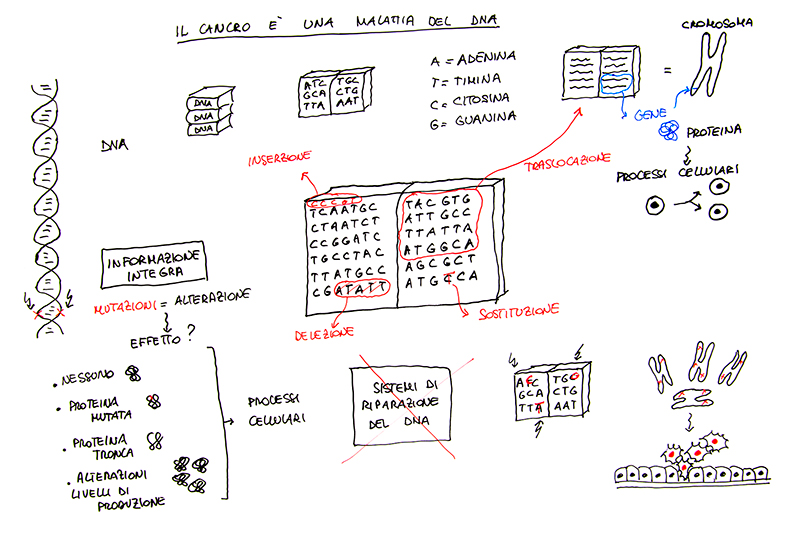 IL CANCRO E' UNA MALATTIA DEL DNA
CROMOSOMA
DNA
DNA
DNA
ATC TGC
GCA CTG
TTA AAT
A = ADENINA
T = TIMINA
C = CITOSINA
G = GUANINA
=
GENE
PROTEINA
PROCESSI CELLULARI
DNA
INSERZIONE
TRASLOCAZIONE
TCAATGC
CTAATCT
CCGGATC
TGCCTAC
TTATGCC
CGATATT
TAC GTG
ATT GCC
TTATTA
ATGGCA
AGCGCT
ATG CA
DELEZIONE
SOSTITUZIONE
INFORMAZIONE
INTEGRA
MUTAZIONI = ALTERAZIONE
EFFETTO ?
• NESSUNO
• PROTEINA
MUTATA
• PROTEINA
TRONCA
• ALTERAZIONI
LIVELLI DI
PRODUZIONE
PROCESSI
CELLULARI
SISTEMI DI
RIPARAZIONE
DEL DNA
GCA CTG
TTA AAT